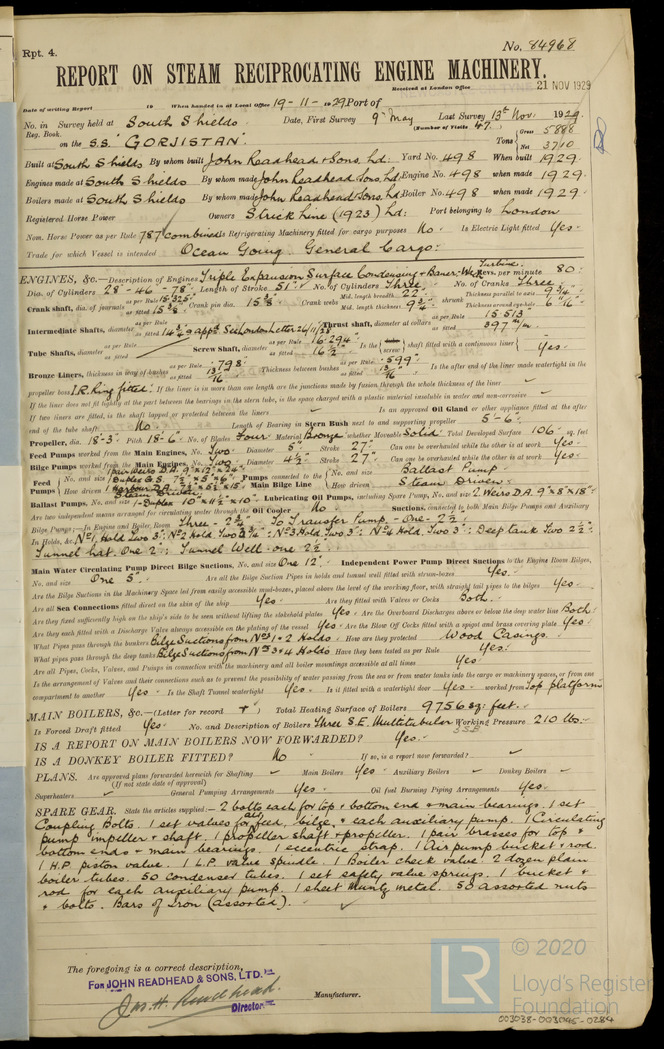 Rpt. 4.
No. 84968
REPORT ON STEAM RECIPROCATING ENGINE MACHINERY.
Received at London Office 21 NOV 1929
Date of writing Report 19 When handed in at Local Office 19-11-1929 Port of
No. in Survey held at South Shields Date, First Survey 9th May Last Survey 13th Nov: 1929
Reg. Book. (Number of Visits 47.)
on the S.S. "GORJISTAN". Tons Gross 5888 Net 3710
Built at South Shields By whom built John Readhead & Sons, Ld: Yard No. 498 When built 1929.
Engines made at South Shields By whom made John Readhead Sons, Ld: Engine No. 498 when made 1929.
Boilers made at South Shields By whom made John Readhead Sons, Ld: Boiler No. 498 when made 1929.
Registered Horse Power Owners Strick Line (1923) Ld: Port belonging to London
Nom. Horse Power as per Rule 787 combined Is Refrigerating Machinery fitted for cargo purposes No. Is Electric Light fitted Yes.
Trade for which Vessel is intended Ocean Going General Cargo:
ENGINES, &c.—Description of Engines Triple Expansion Surface Condensing & Bauer-Wach Turbine. Revs. per minute 80:
Dia. of Cylinders 28"-46"-78" Length of Stroke 51" No. of Cylinders Three No. of Cranks Three
Crank shaft, dia. of journals as per Rule 15.325" as fitted 15 3/8" Crank pin dia. 15 3/8" Crank webs Mid. length breadth 22" Mid. length thickness 9 3/4" shrunk Thickness parallel to axis 9 3/4" Thickness around eye-hole 6 7/16"
Intermediate Shafts, diameter as per Rule as fitted 14 3/4" appd. See London letter 26/11/28 Thrust shaft, diameter at collars as per Rule 15.513" as fitted 397 m/m
Tube Shafts, diameter as per Rule as fitted Screw Shaft, diameter as per Rule 16.294" as fitted 16 1/2" Is the screw shaft fitted with a continuous liner Yes.
Bronze Liners, thickness in way of bushes as per Rule .798" as fitted 13/16" Thickness between bushes as per Rule .599" as fitted 13/16" Is the after end of the liner made watertight in the
propeller boss I.R. Ring fitted: If the liner is in more than one length are the junctions made by fusion through the whole thickness of the liner
If the liner does not fit tightly at the part between the bearings in the stern tube, is the space charged with a plastic material insoluble in water and non-corrosive
If two liners are fitted, is the shaft lapped or protected between the liners Is an approved Oil Gland or other appliance fitted at the after
end of the tube shaft No Length of Bearing in Stern Bush next to and supporting propeller 5'-6".
Propeller, dia. 18'-3" Pitch 18'-6" No. of Blades Four Material Bronze whether Moveable Solid Total Developed Surface 106 sq. feet
Feed Pumps worked from the Main Engines, No. Two Diameter 5" Stroke 27" Can one be overhauled while the other is at work Yes.
Bilge Pumps worked from the Main Engines, No. Two Diameter 4 1/2" Stroke 27" Can one be overhauled while the other is at work Yes.
Feed Pumps No. and size 1 pair Weirs D.A. 9"x12"x24" Duplex G.S. 7 1/2"x5"x6" 1 Harbour D.A. Pumps connected to the Main Bilge Line No. and size Ballast Pump.
How driven Steam Driven How driven Steam Driven
Ballast Pumps, No. and size 1-Duplex Lubricating Oil Pumps, including Spare Pump, No. and size 2 Weirs D.A. 9"x8"x18"
Are two independent means arranged for circulating water through the Oil Cooler No Suctions, connected to both Main Bilge Pumps and Auxiliary
Bilge Pumps;—In Engine and Boiler Room Three-2 3/4" To Transfer Pump.-One-2 1/2"
In Holds, &c. No. 1, Hold Two 3": No. 2 Hold Two 3 1/4": No. 3 Hold Two 3": No. 4 Hold, Two 3": Deep tank Two 2 1/2"
Tunnel hat. One 2": Tunnel Well-one 2 1/2
Main Water Circulating Pump Direct Bilge Suctions, No. and size One 12". Independent Power Pump Direct Suctions to the Engine Room Bilges,
No. and size One 5". Are all the Bilge Suction Pipes in holds and tunnel well fitted with strum-boxes Yes.
Are the Bilge Suctions in the Machinery Space led from easily accessible mud-boxes, placed above the level of the working floor, with straight tail pipes to the bilges Yes.
Are all Sea Connections fitted direct on the skin of the ship Yes. Are they fitted with Valves or Cocks Both.
Are they fixed sufficiently high on the ship's side to be seen without lifting the stokehold plates Yes. Are the Overboard Discharges above or below the deep water line Both:
Are they each fitted with a Discharge Valve always accessible on the plating of the vessel Yes. Are the Blow Off Cocks fitted with a spigot and brass covering plate Yes.
What Pipes pass through the bunkers Bilge Suctions from Nos 1 & 2 Holds. How are they protected Wood Casings.
What pipes pass through the deep tanks Bilge Suctions from Nos 3 & 4 Holds Have they been tested as per Rule Yes.
Are all Pipes, Cocks, Valves, and Pumps in connection with the machinery and all boiler mountings accessible at all times Yes
Is the arrangement of Valves and their connections such as to prevent the possibility of water passing from the sea or from water tanks into the cargo or machinery spaces, or from one
compartment to another Yes Is the Shaft Tunnel watertight Yes Is it fitted with a watertight door Yes worked from Top platform
MAIN BOILERS, &c.—(Letter for record +) Total Heating Surface of Boilers 9756 sq: feet.
Is Forced Draft fitted Yes. No. and Description of Boilers Three S.E. Multitubular Working Pressure 210 lbs.
3SB
IS A REPORT ON MAIN BOILERS NOW FORWARDED? Yes.
IS A DONKEY BOILER FITTED? No If so, is a report now forwarded?
PLANS. Are approved plans forwarded herewith for Shafting Main Boilers Yes Auxiliary Boilers Donkey Boilers
(If not state date of approval)
Superheaters General Pumping Arrangements Yes. Oil fuel Burning Piping Arrangements Yes.
SPARE GEAR. State the articles supplied:— 2 bolts each for top & bottom end & main bearings. 1 set
Coupling Bolts. 1 set valves for all feed, bilge, & each auxiliary pump. 1 Circulating
pump impeller & shaft. 1 propeller shaft & propeller. 1 pair brasses for top &
bottom ends & main bearings. 1 eccentric strap. 1 Air pump bucket & rod.
1 H.P. piston valve. 1 L.P. valve spindle. 1 Boiler check valve. 2 dozen plain
boiler tubes. 50 condenser tubes. 1 set safety valve springs. 1 bucket &
rod for each auxiliary pump. 1 sheet Muntz metal. 50 assorted nuts
& bolts. Bars of Iron (Assorted).
The foregoing is a correct description,
FOR JOHN READHEAD & SONS, LTD.
Jas. H. Readhead.
Director
Manufacturer.
LR
© 2020
Lloyd's Register
Foundation
003038-003045-0284